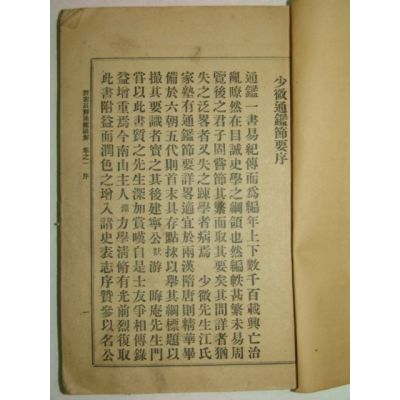 少微通鑑節要序
通鑑一書易紀傳而爲編年上下數千百載興亡治
亂瞭然在目誠史學之綱領也然編帙甚繁未易周
覽後之君子固嘗節其繁而取其要矣其間詳者猶
失之泛畧者又失之踈學者病焉 少微先生江氏
家塾有通鑑節要詳畧適宜於兩漢隋唐則精華畢
備於六朝五代則首末具存點抹以舉其綱標題以
撮其要識者寶之其後建寧公默游 晦庵先生門
嘗以此書質之先生深加賞嘆自是士友爭相傳錄
益增重焉今南山主人淵力學淸脩有光前烈復取
此書附益而潤色之增入諸史表志序贊參以名公
卷之一 序